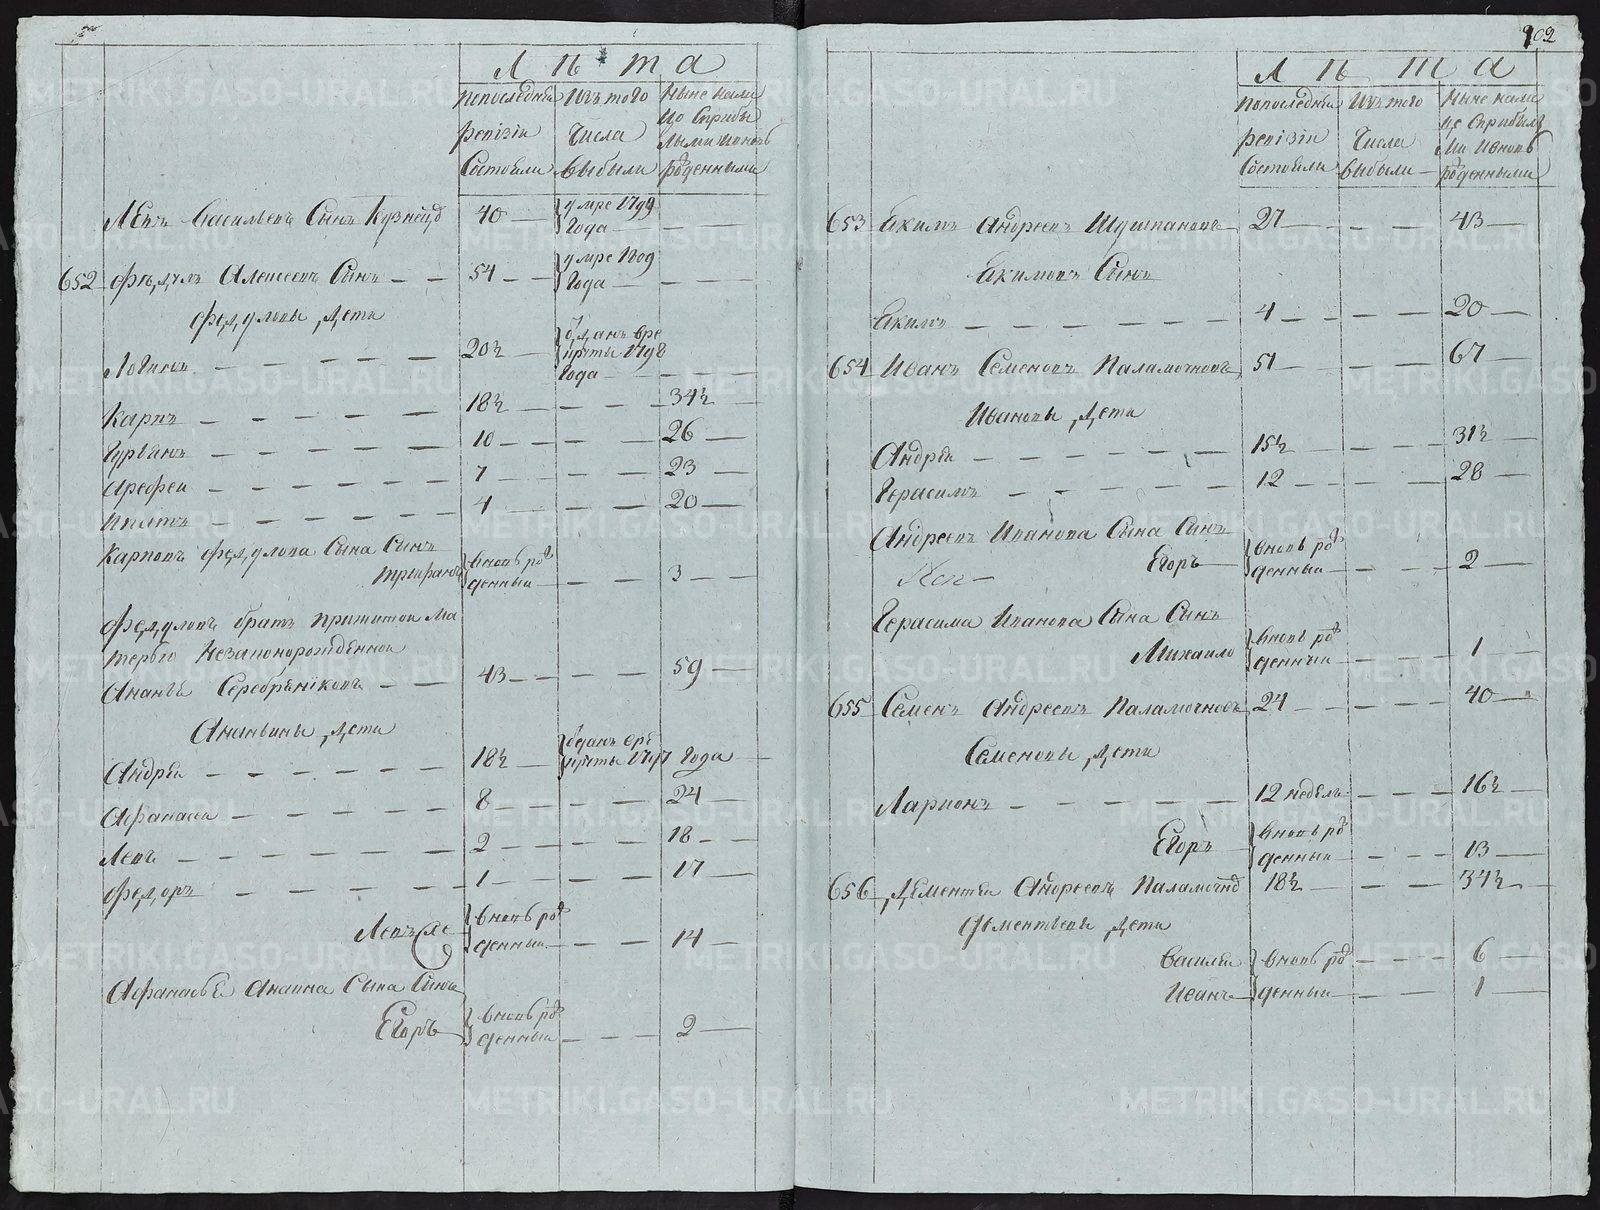 Лѣта
Попоследнѣй ревизіи состояли
Изъ того числа выбыли
Ныне налицо съ прибылыми и вновь рожденными
Левъ Васильевъ Сынъ Кузнецо 40 умре 1799 Года
652 Федулъ Алексеевъ Сынъ 54 умре 1809 Года
Федуловы дети
Логинъ 20½ отданъ вре круты 1798 Года
Карпъ 18½ 34½
10 26
Арефеи 7 23
4 20
Карповъ Федулова Сына Сынъ
Трифанъ вновь рож денный 3
Федуловъ братъ прижитой ма
терью незаконорожденной
Ананья Серебрениковъ 43 59
Ананьины дети
Андреи 18½ отданъ вре круты 1797 Года
Афанасеи 8 24
Левъ 2 18
Федоръ 1 17
Левъ же вновь рож денный 14
Афанасья Ананина Сына Сынъ
Егоръ вновь рож денный 2
902
Лѣта
Попоследнѣй ревизіи состояли
Изъ того числа выбыли
Ныне налице съ прибылыми и вновь рожденными
653 Екимъ Андреевъ Шушпановъ 27 43
Екимовъ Сынъ
Екимъ 4 20
654 Иванъ Семеновъ Паламочновъ 51 67
Ивановы дети
Андреи 15½ 31½
Герасимъ 12 28
Андреевъ Иванова Сына Сынъ
Егоръ вновь рож денный 2
Герасима Иванова Сына Сынъ
Михаило вновь рож денный 1
655 Семенъ Андреевъ Паламочновъ 24 40
Семеновы дети
Ларионъ 12 недель 16½
Егоръ вновь рож денный 13
656 Дементеи Андреевъ Паламочно 18½ 34½
Дементьевы дети
Василеи вновь рож 6
Иванъ денный 1
METRIKI.GASO-URAL.RU